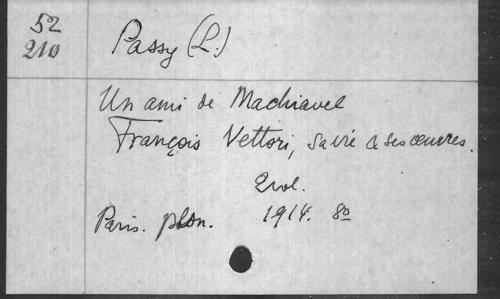 52
210
Passy (L.)
Un ami de Machiavel
François Vettori, sa vie & ses œuvres.
2 vol.
Paris. plon. 1914. 8º